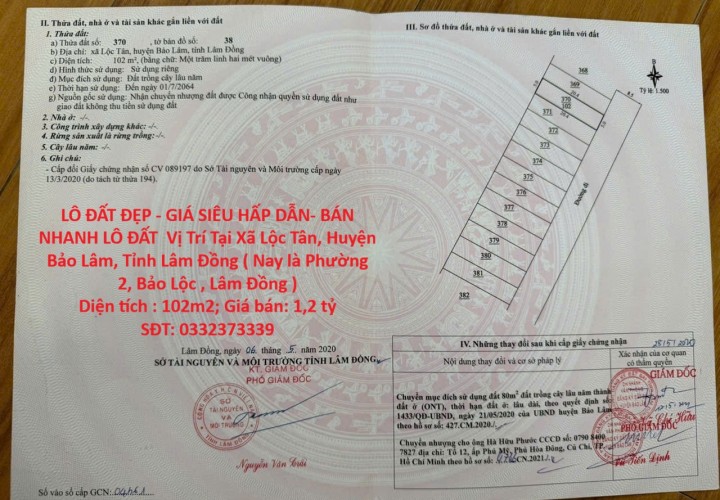 II. Thửa đất, nhà ở và tài sản khác gắn liền với đất
1. Thửa đất:
a) Thửa đất số: 370 , tờ bản đồ số: 38
b) Địa chỉ: xã Lộc Tân, huyện Bảo Lâm, tỉnh Lâm Đồng
c) Diện tích: 102 m², (bằng chữ: Một trăm linh hai mét vuông)
d) Hình thức sử dụng: Sử dụng riêng
đ) Mục đích sử dụng: Đất trồng cây lâu năm
e) Thời hạn sử dụng: Đến ngày 01/7/2064
g) Nguồn gốc sử dụng: Nhận chuyển nhượng đất được Công nhận quyền sử dụng đất như
giao đất không thu tiền sử dụng đất
2. Nhà ở: -/-
3. Công trình xây dựng khác: -/-
4. Rừng sản xuất là rừng trồng: -/-
5. Cây lâu năm: -/-
6. Ghi chú:
- Cấp đổi Giấy chứng nhận số CV 089197 do Sở Tài nguyên và Môi trường cấp ngày
13/3/2020 (do tách từ thửa 194).
LÔ ĐẤT ĐẸP - GIÁ SIÊU HẤP DẪN- BÁN
NHANH LÔ ĐẤT Vị Trí Tại Xã Lộc Tân, Huyện
Bảo Lâm, Tỉnh Lâm Đồng ( Nay là Phường
2, Bảo Lộc , Lâm Đồng )
Diện tích : 102m2; Giá bán: 1,2 tỷ
SĐT: 0332373339
Lâm Đồng, ngày 06 tháng 5 năm 2020
SỞ TÀI NGUYÊN VÀ MÔI TRƯỜNG TỈNH LÂM ĐỒNG
KT. GIÁM ĐỐC
PHÓ GIÁM ĐỐC
SỞ
TÀI NGUYÊN
VÀ
MÔI TRƯỜNG
TỈNH LÂM ĐỒNG
Số vào sổ cấp GCN:
III. Sơ đồ thửa đất, nhà ở và tài sản khác gắn liền với đất
B
Tỷ lệ 1:500
368
369
370
102
371
372
373
374
375
376
377
378
379
380
381
382
Đường đi
IV. Những thay đổi sau khi cấp giấy chứng nhận
Nội dung thay đổi và cơ sở pháp lý
Xác nhận của cơ quan
có thẩm quyền
Chuyển mục đích sử dụng đất 80m² đất trồng cây lâu năm thành
đất ở (ONT), thời hạn đất ở: lâu dài, theo quyết định số:
1433/QĐ-UBND, ngày 21/05/2020 của UBND huyện Bảo Lâm
theo hồ sơ số: 427.CM.2020./.
GIÁM ĐỐC
Chuyển nhượng cho ông Hà Hữu Phước CCCD số: 0790 8400
7827 địa chỉ: Tổ 12, ấp Phú Mỹ, Phú Hòa Đông, Củ Chi, TP.
Hồ Chí Minh theo hồ sơ số: CN.2021./.
PHÓ GIÁM ĐỐC
Vũ Tiến Định